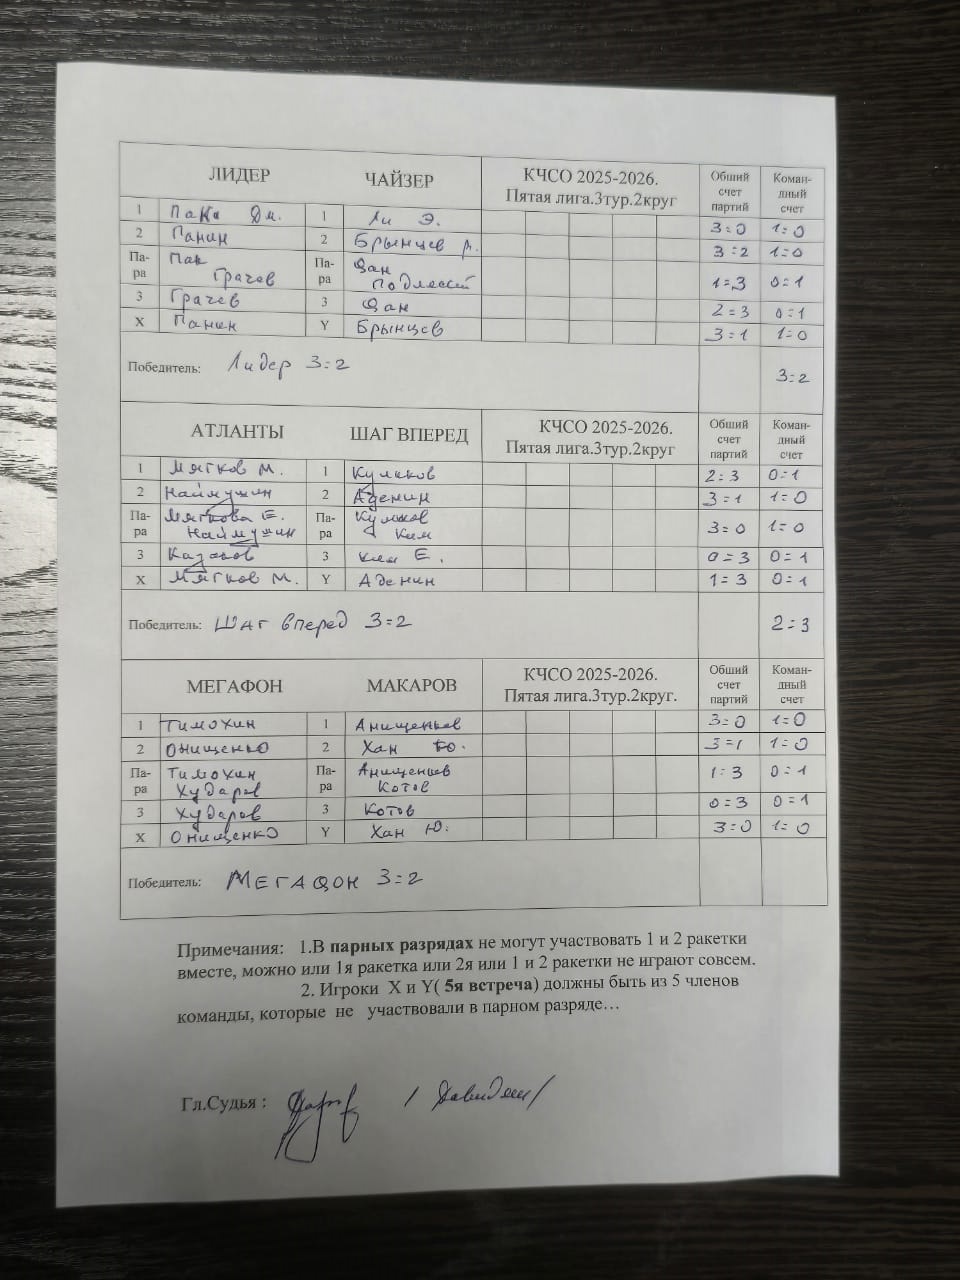 ЛИДЕР ЧАЙЗЕР КЧСО 2025-2026. Пятая лига.3тур.2круг Обший счет партий Коман-дный счет
1 Пак Дм. 1 Ли Э. 3:0 1:0
2 Панин 2 Брынцев А. 3:2 1:0
Па-ра Пак Грачев Па-ра Цан 1:3 0:1
3 Грачев 3 Цан 2:3 0:1
X Панин Y Брынцев 3:1 1:0
Победитель: Лидер 3:2 3:2
АТЛАНТЫ ШАГ ВПЕРЕД КЧСО 2025-2026. Пятая лига.3тур.2круг Обший счет партий Коман-дный счет
1 Мягков М. 1 Куликов 2:3 0:1
2 Наймушин 2 Аденин 3:1 1:0
Па-ра Мягкова Е. Наймушин Па-ра Куликов Ким 3:0 1:0
3 Казаков 3 Ким Е. 0:3 0:1
X Мягков М. Y Аденин 1:3 0:1
Победитель: Шаг вперед 3:2 2:3
МЕГАФОН МАКАРОВ КЧСО 2025-2026. Пятая лига.3тур.2круг. Обший счет партий Коман-дный счет
1 Тимохин 1 3:0 1:0
2 Онищенко 2 Хан Ю. 3:1 1:0
Па-ра Тимохин Хударов Па-ра Котов 1:3 0:1
3 Хударов 3 Котов 0:3 0:1
X Онищенко Y Хан Ю. 3:0 1:0
Победитель: МЕГАФОН 3:2
Примечания: 1.В парных разрядах не могут участвовать 1 и 2 ракетки
вместе, можно или 1я ракетка или 2я или 1 и 2 ракетки не играют совсем.
2. Игроки X и Y( 5я встреча) должны быть из 5 членов
команды, которые не участвовали в парном разряде…
Гл.Судья :